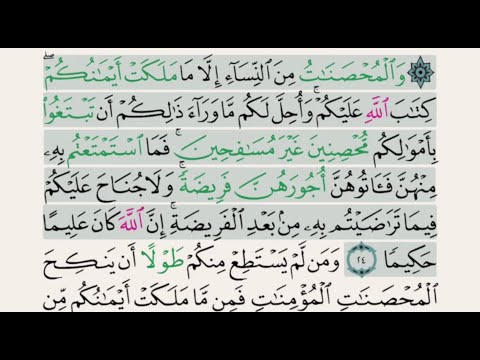 ۞ وَٱلْمُحْصَنَٰتُ مِنَ ٱلنِّسَآءِ إِلَّا مَا مَلَكَتْ أَيْمَٰنُكُمْ ۖ
كِتَٰبَ ٱللَّهِ عَلَيْكُمْ ۚ وَأُحِلَّ لَكُم مَّا وَرَآءَ ذَٰلِكُمْ أَن تَبْتَغُوا۟
بِأَمْوَٰلِكُم مُّحْصِنِينَ غَيْرَ مُسَٰفِحِينَ ۚ فَمَا ٱسْتَمْتَعْتُم بِهِۦ
مِنْهُنَّ فَـَٔاتُوهُنَّ أُجُورَهُنَّ فَرِيضَةً ۚ وَلَا جُنَاحَ عَلَيْكُمْ
فِيمَا تَرَٰضَيْتُم بِهِۦ مِنۢ بَعْدِ ٱلْفَرِيضَةِ ۚ إِنَّ ٱللَّهَ كَانَ عَلِيمًا
حَكِيمًا ٢٤ وَمَن لَّمْ يَسْتَطِعْ مِنكُمْ طَوْلًا أَن يَنكِحَ
ٱلْمُحْصَنَٰتِ ٱلْمُؤْمِنَٰتِ فَمِن مَّا مَلَكَتْ أَيْمَٰنُكُم مِّن